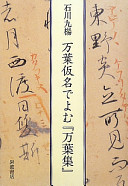 東野炎立所見
万葉仮名でよむ『万葉集』
石川九楊
月西渡
岩波書店